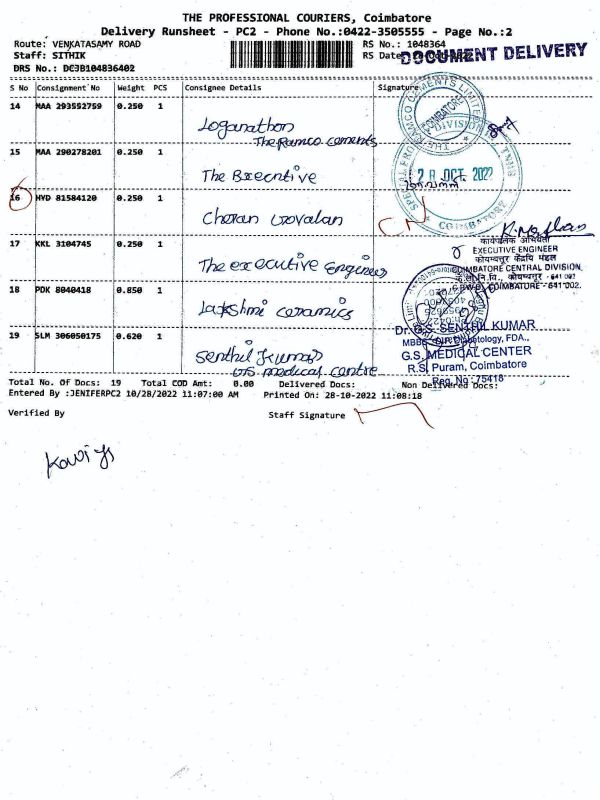 THE PROFESSIONAL COURIERS, Coimbatore
Delivery Runsheet - PC2 - Phone No.:0422-3505555 - Page No.:2
Route: VENKATASAMY ROAD RS No.: 1048364
Staff: SITHIK RS Date
DOCUMENT DELIVERY
DRS No.: DCJB104836402
S No Consignment No Weight PCS Consignee Details Signature
14 MAA 293552759 0.250 1
Loganathan
The Ramco cements
THE RAMCO CEMENTS LIMITED
COIMBATORE
DIVISION
15 MAA 290278201 0.250 1
The Executive
28 OCT 2022
COIMBATORE
16 HYD 81584120 0.250 1
Cheran
CN
17 KKL 3104745 0.250 1
The executive Engineer
कार्यपालक अभियंता
EXECUTIVE ENGINEER
कोयम्बत्तूर केंद्रीय मंडल
COIMBATORE CENTRAL DIVISION
C.P.W.D., COIMBATORE - 641 002.
18 PDK 8040418 0.850 1
Lakshmi ceramics
19 SLM 306050175 0.620 1
Senthil Kumar
medical centre
Dr. G.S. SENTHIL KUMAR
MBBS., Dip. Diabetology, FDA.,
G.S. MEDICAL CENTER
R.S. Puram, Coimbatore
Reg. No : 75418
Total No. Of Docs: 19 Total COD Amt: 0.00 Delivered Docs: Non Delivered Docs:
Entered By :JENIFERPC2 10/28/2022 11:07:00 AM Printed On: 28-10-2022 11:08:18
Verified By Staff Signature